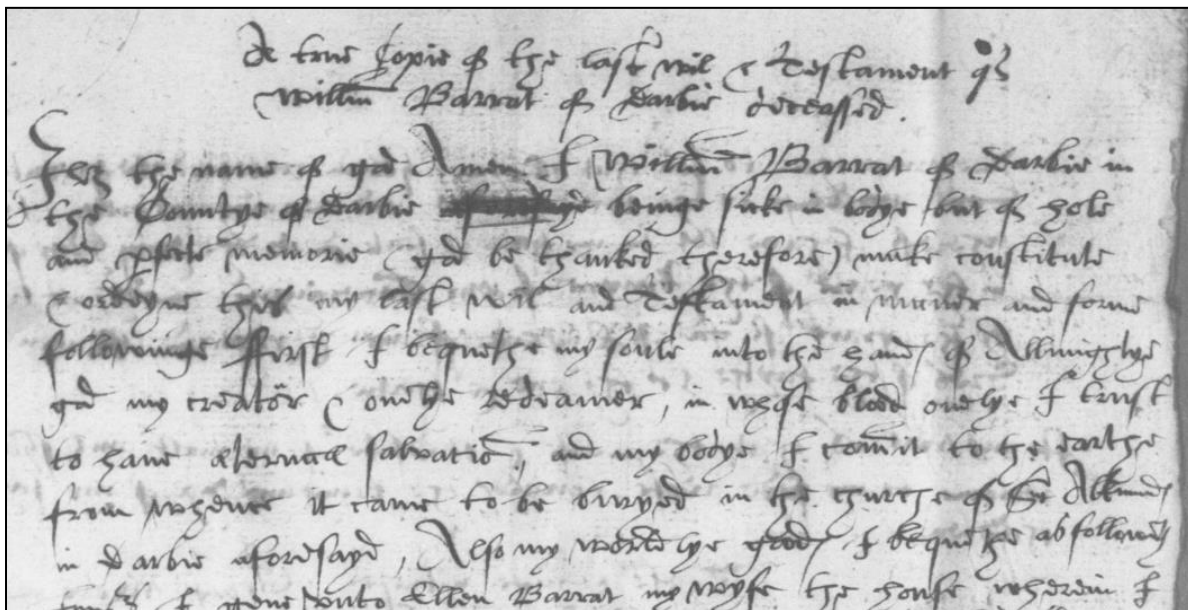 A true Copie of the last wil & Testament of
Willm̄ Barrat of Darbie deceassed.
In the name of god Amen. I Willm̄ Barrat of Darbie in
the Countye of Darbie beinge sicke in bodye but of hole
and pfecte memorie (god be thanked therefore) make constitute
& ordeyne this my last wil and Testament in maner and forme
followinge ffirst I bequethe my soule into the hands of Allmightye
god my creator & onelye redeamer, in whose blood onelye I trust
to have æternall salvatiō, and my bodye I com̄it to the earthe
from whence it came to be buryed in the churche of St Alkmunds
in Darbie aforesayd, Also my worldlye goods I bequethe as followeth
I geve unto Ellen Barrat my wyfe the house wherein I